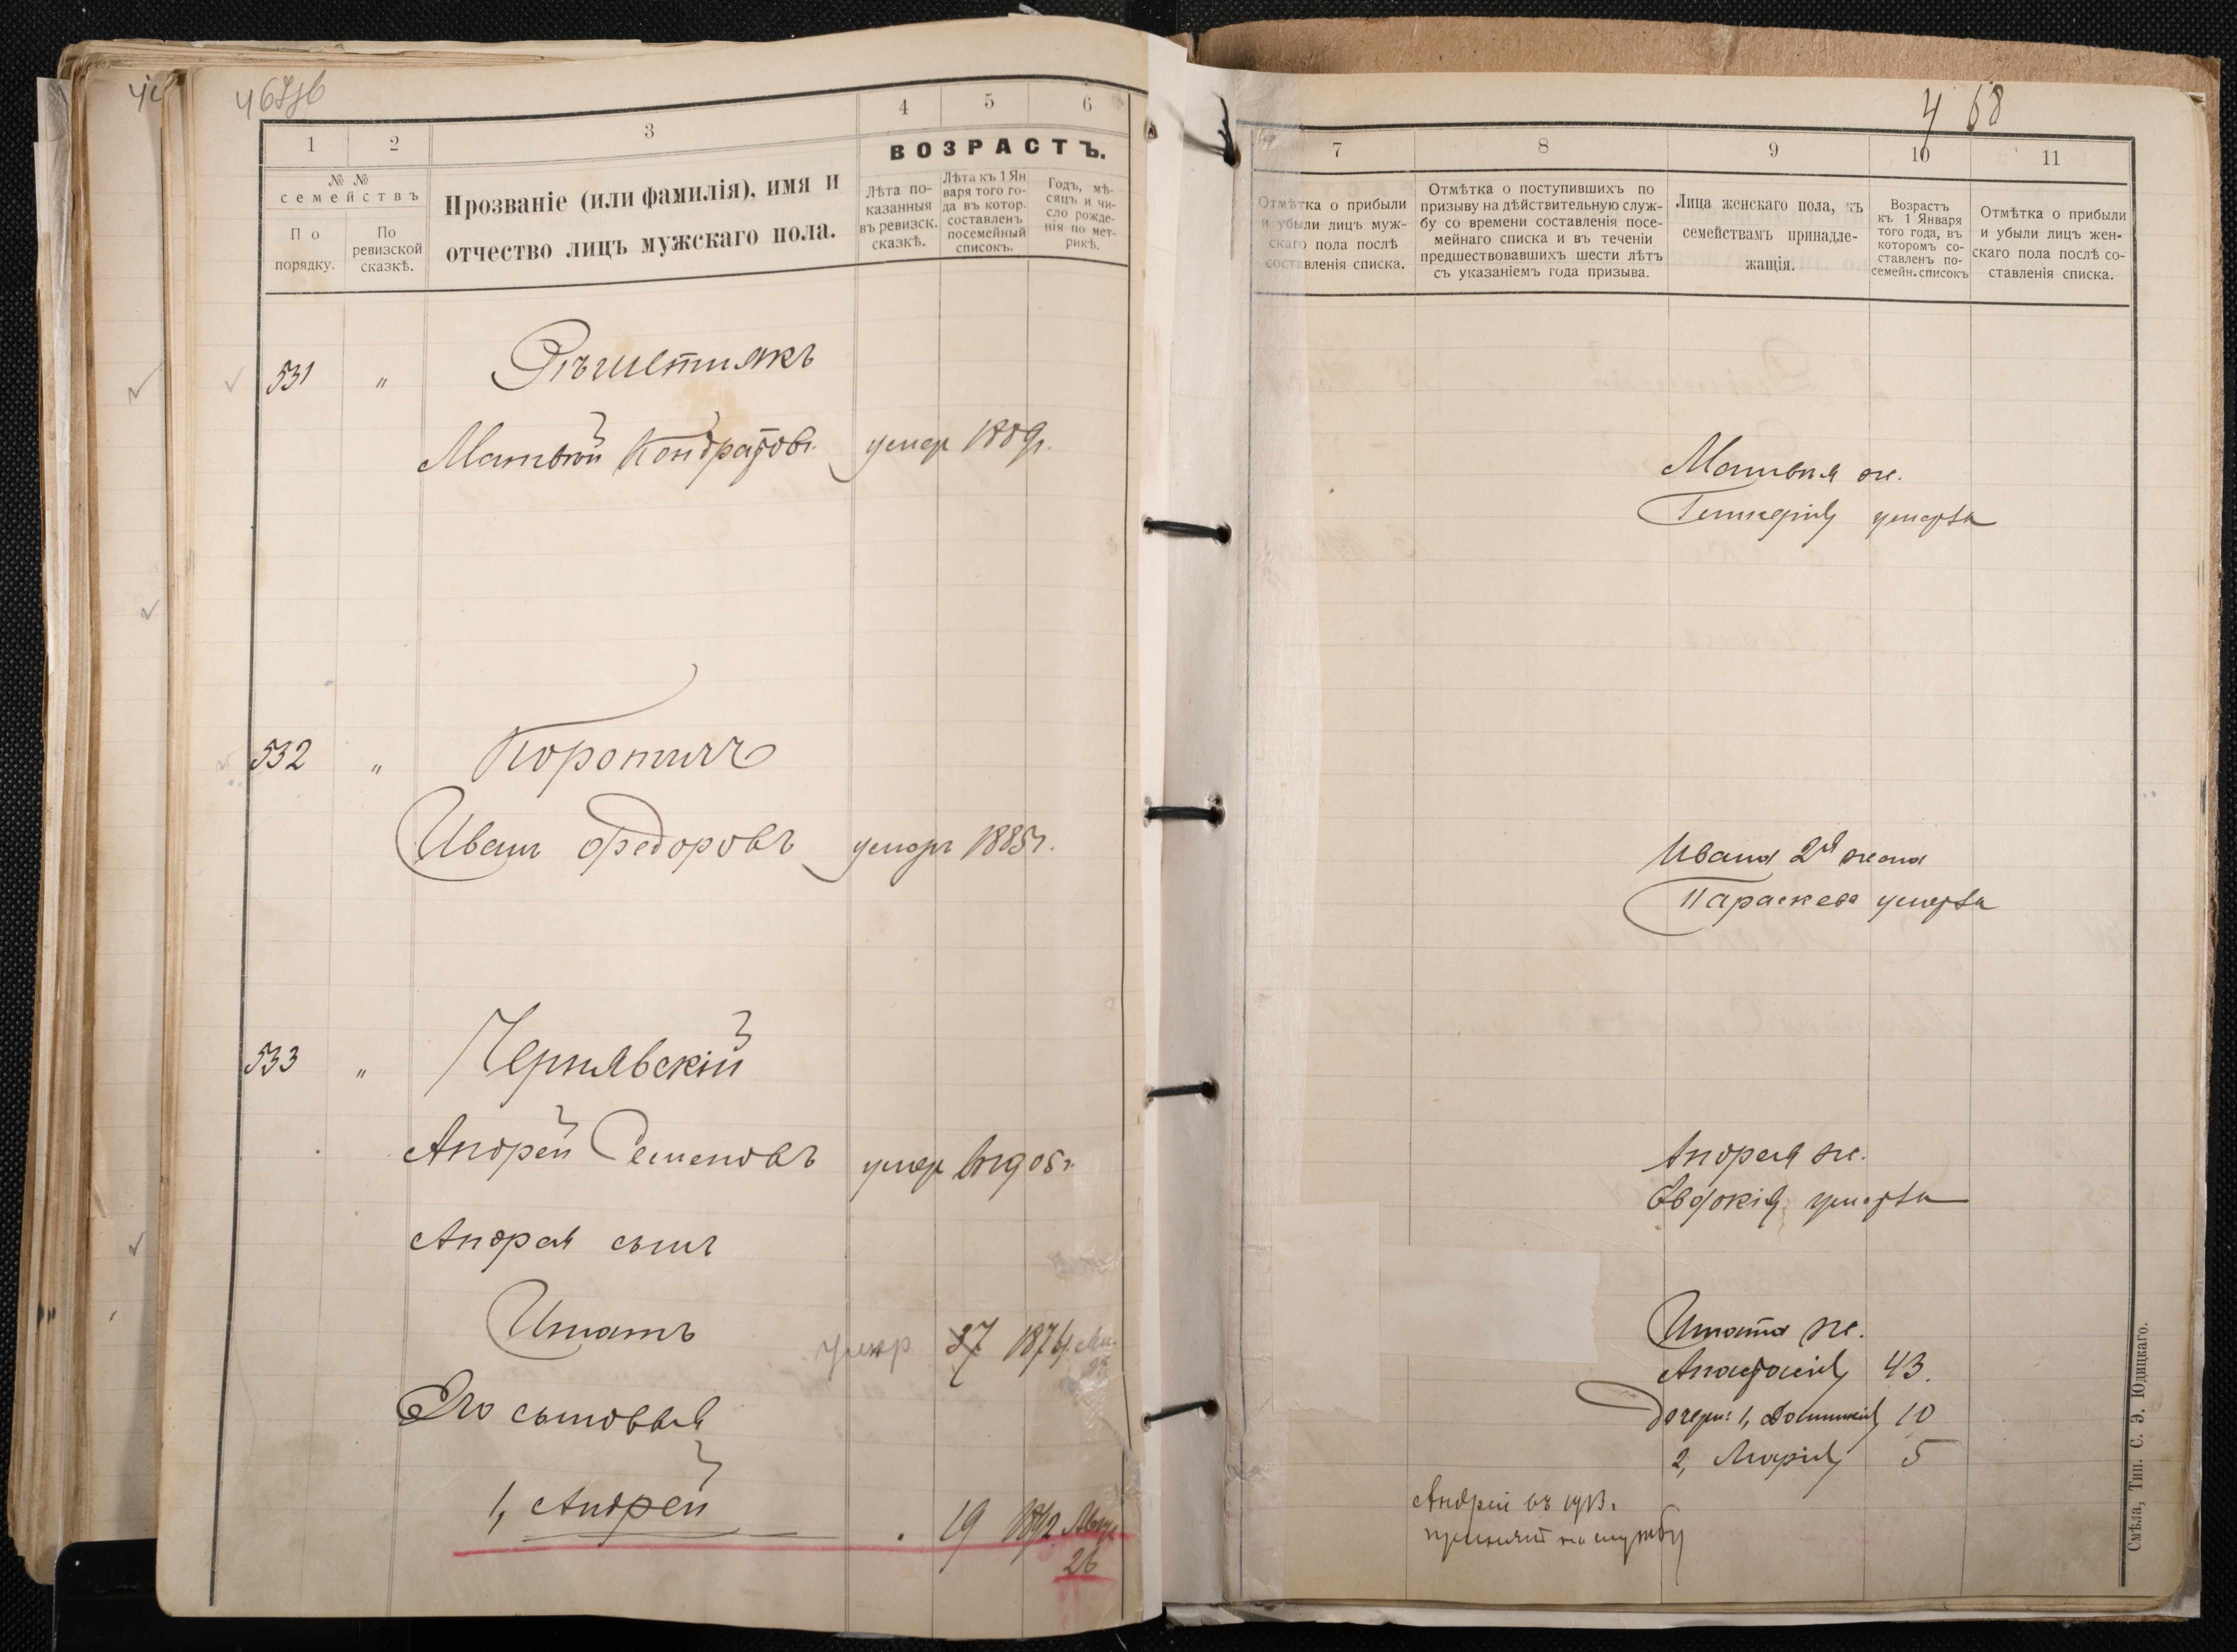 467об
1
2
3
4
5
6
№ №
семействъ
По
порядку.
По
ревизской
сказкѣ.
Прозваніе (или фамилія), имя и
отчество лицъ мужскаго пола.
ВОЗРАСТЪ.
Лѣта по-
казанныя
въ ревизск.
сказкѣ.
Лѣта къ 1 Ян
варя того го-
да въ котор.
составленъ
посемейный
списокъ.
Годъ, мѣ-
сяцъ и чи-
сло рожде-
нія по мет-
рикѣ.
531 "
Матвѣй Кондратов. умер 1889г.
532 " Коротичъ
Иванъ Федоровъ умеръ 1885г.
533 " Чернявскій
Андрей Семеновъ умер въ 1905г.
Андрея сынъ
Игнатъ умер 37 1874
Его сыновья
1, Андрей 19 1892 Авгус
26
468
7
8
9
10
11
Отмѣтка о прибыли
и убыли лицъ муж-
скаго пола послѣ
составленія списка.
Отмѣтка о поступившихъ по
призыву на дѣйствительную служ-
бу со времени составленія посе-
мейнаго списка и въ теченіи
предшествовавшихъ шести лѣтъ
съ указаніемъ года призыва.
Лица женскаго пола, къ
семействамъ принадле-
жащія.
Возрастъ
къ 1 Января
того года, въ
которомъ со-
ставленъ по-
семейн. списокъ
Отмѣтка о прибыли
и убыли лицъ жен-
скаго пола послѣ со-
ставленія списка.
Матвѣя ж.
Гликерія умерла
Ивана 2я жена
Параскева умерла
Андрея ж.
Евдокія умерла
Игната ж.
Анастасія 43.
дочери: 1, 10
2, Марія 5
Андрей въ 1913г.
принятъ на службу
Смѣла, Тип. С. Э. Юдицкаго.